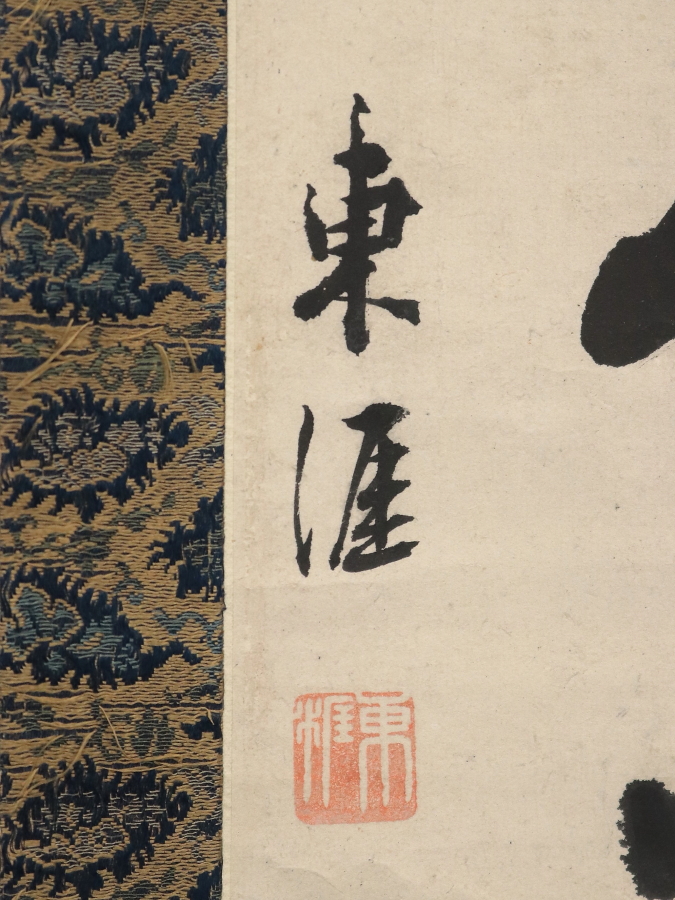 東涯
東涯